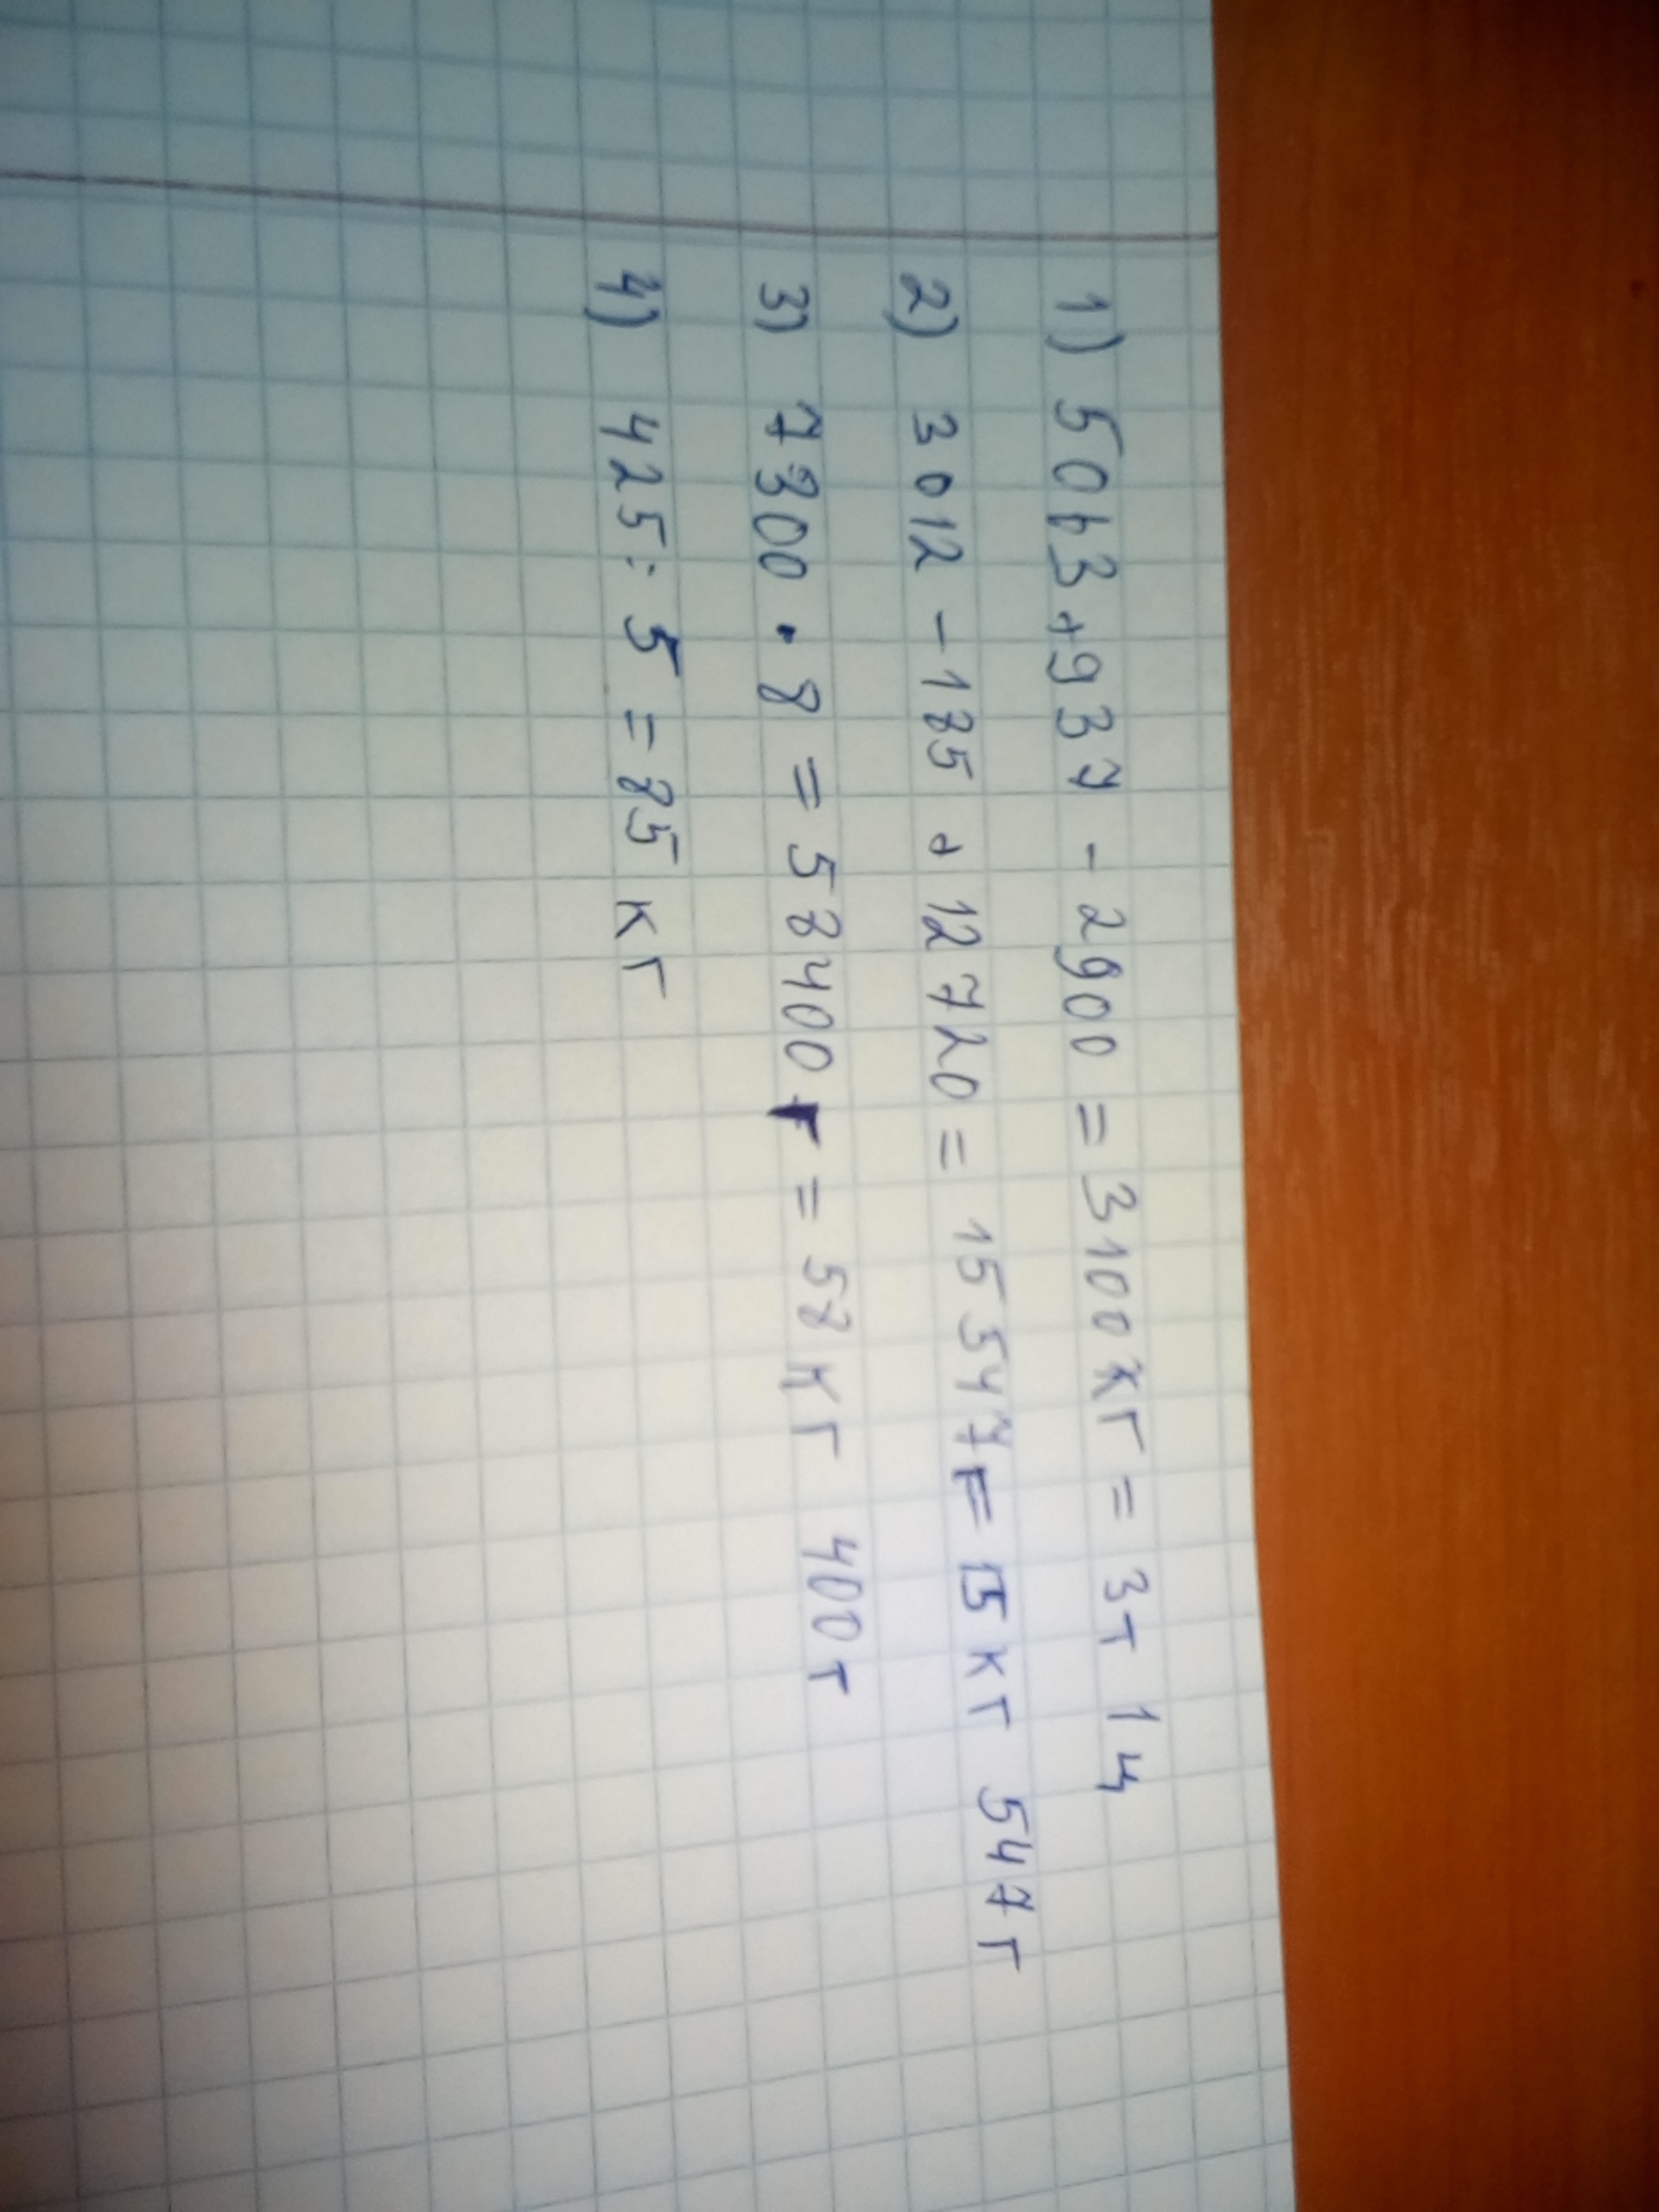 1) 5063+937 - 2900 = 3100 кг = 3т 1ц
2) 3012 - 185 + 12720 = 15547г = 15 кг 547 г
3) 7300 · 8 = 58400 г = 58 кг 400 г
4) 425 : 5 = 85 кг